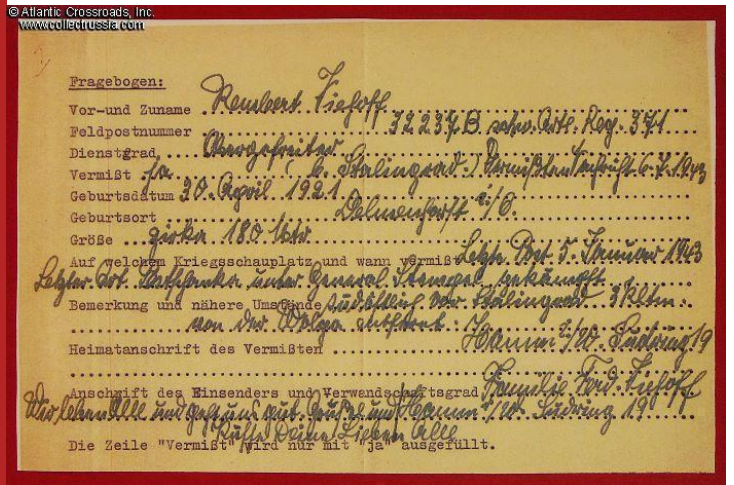 © Atlantic Crossroads, Inc.
www.collectrussia.com
Fragebogen:
Vor-und Zuname Rembert Viehoff
Feldpostnummer 32237B schw. Artl. Reg. 371
Dienstgrad Obergefreiter
Vermißt ja (b. Stalingrad) Vermißten Nachricht 6.7.1943
Geburtsdatum 20. April 1921
Geburtsort Delmenhorst i/O.
Größe zirka 180 mtr
Auf welchem Kriegsschauplatz und wann vermißt Letzte Post 5. Januar 1943
Letzter Ort unter General Stempel gekämpft
Bemerkung und nähere Umstände südöstlich vor Stalingrad 3 Kltm.
von der Wolga entfernt.
Heimatanschrift des Vermißten Hamm i/W. Südring 19
Anschrift des Einsenders und Verwandschaftsgrad Familie Ferd. Viehoff
Wir leben Alle und geht uns gut. Grüße und Hamm i/W. Südring 19
Küsse Deine Lieben Alle
Die Zeile "Vermißt" wird nur mit "ja" ausgefüllt.